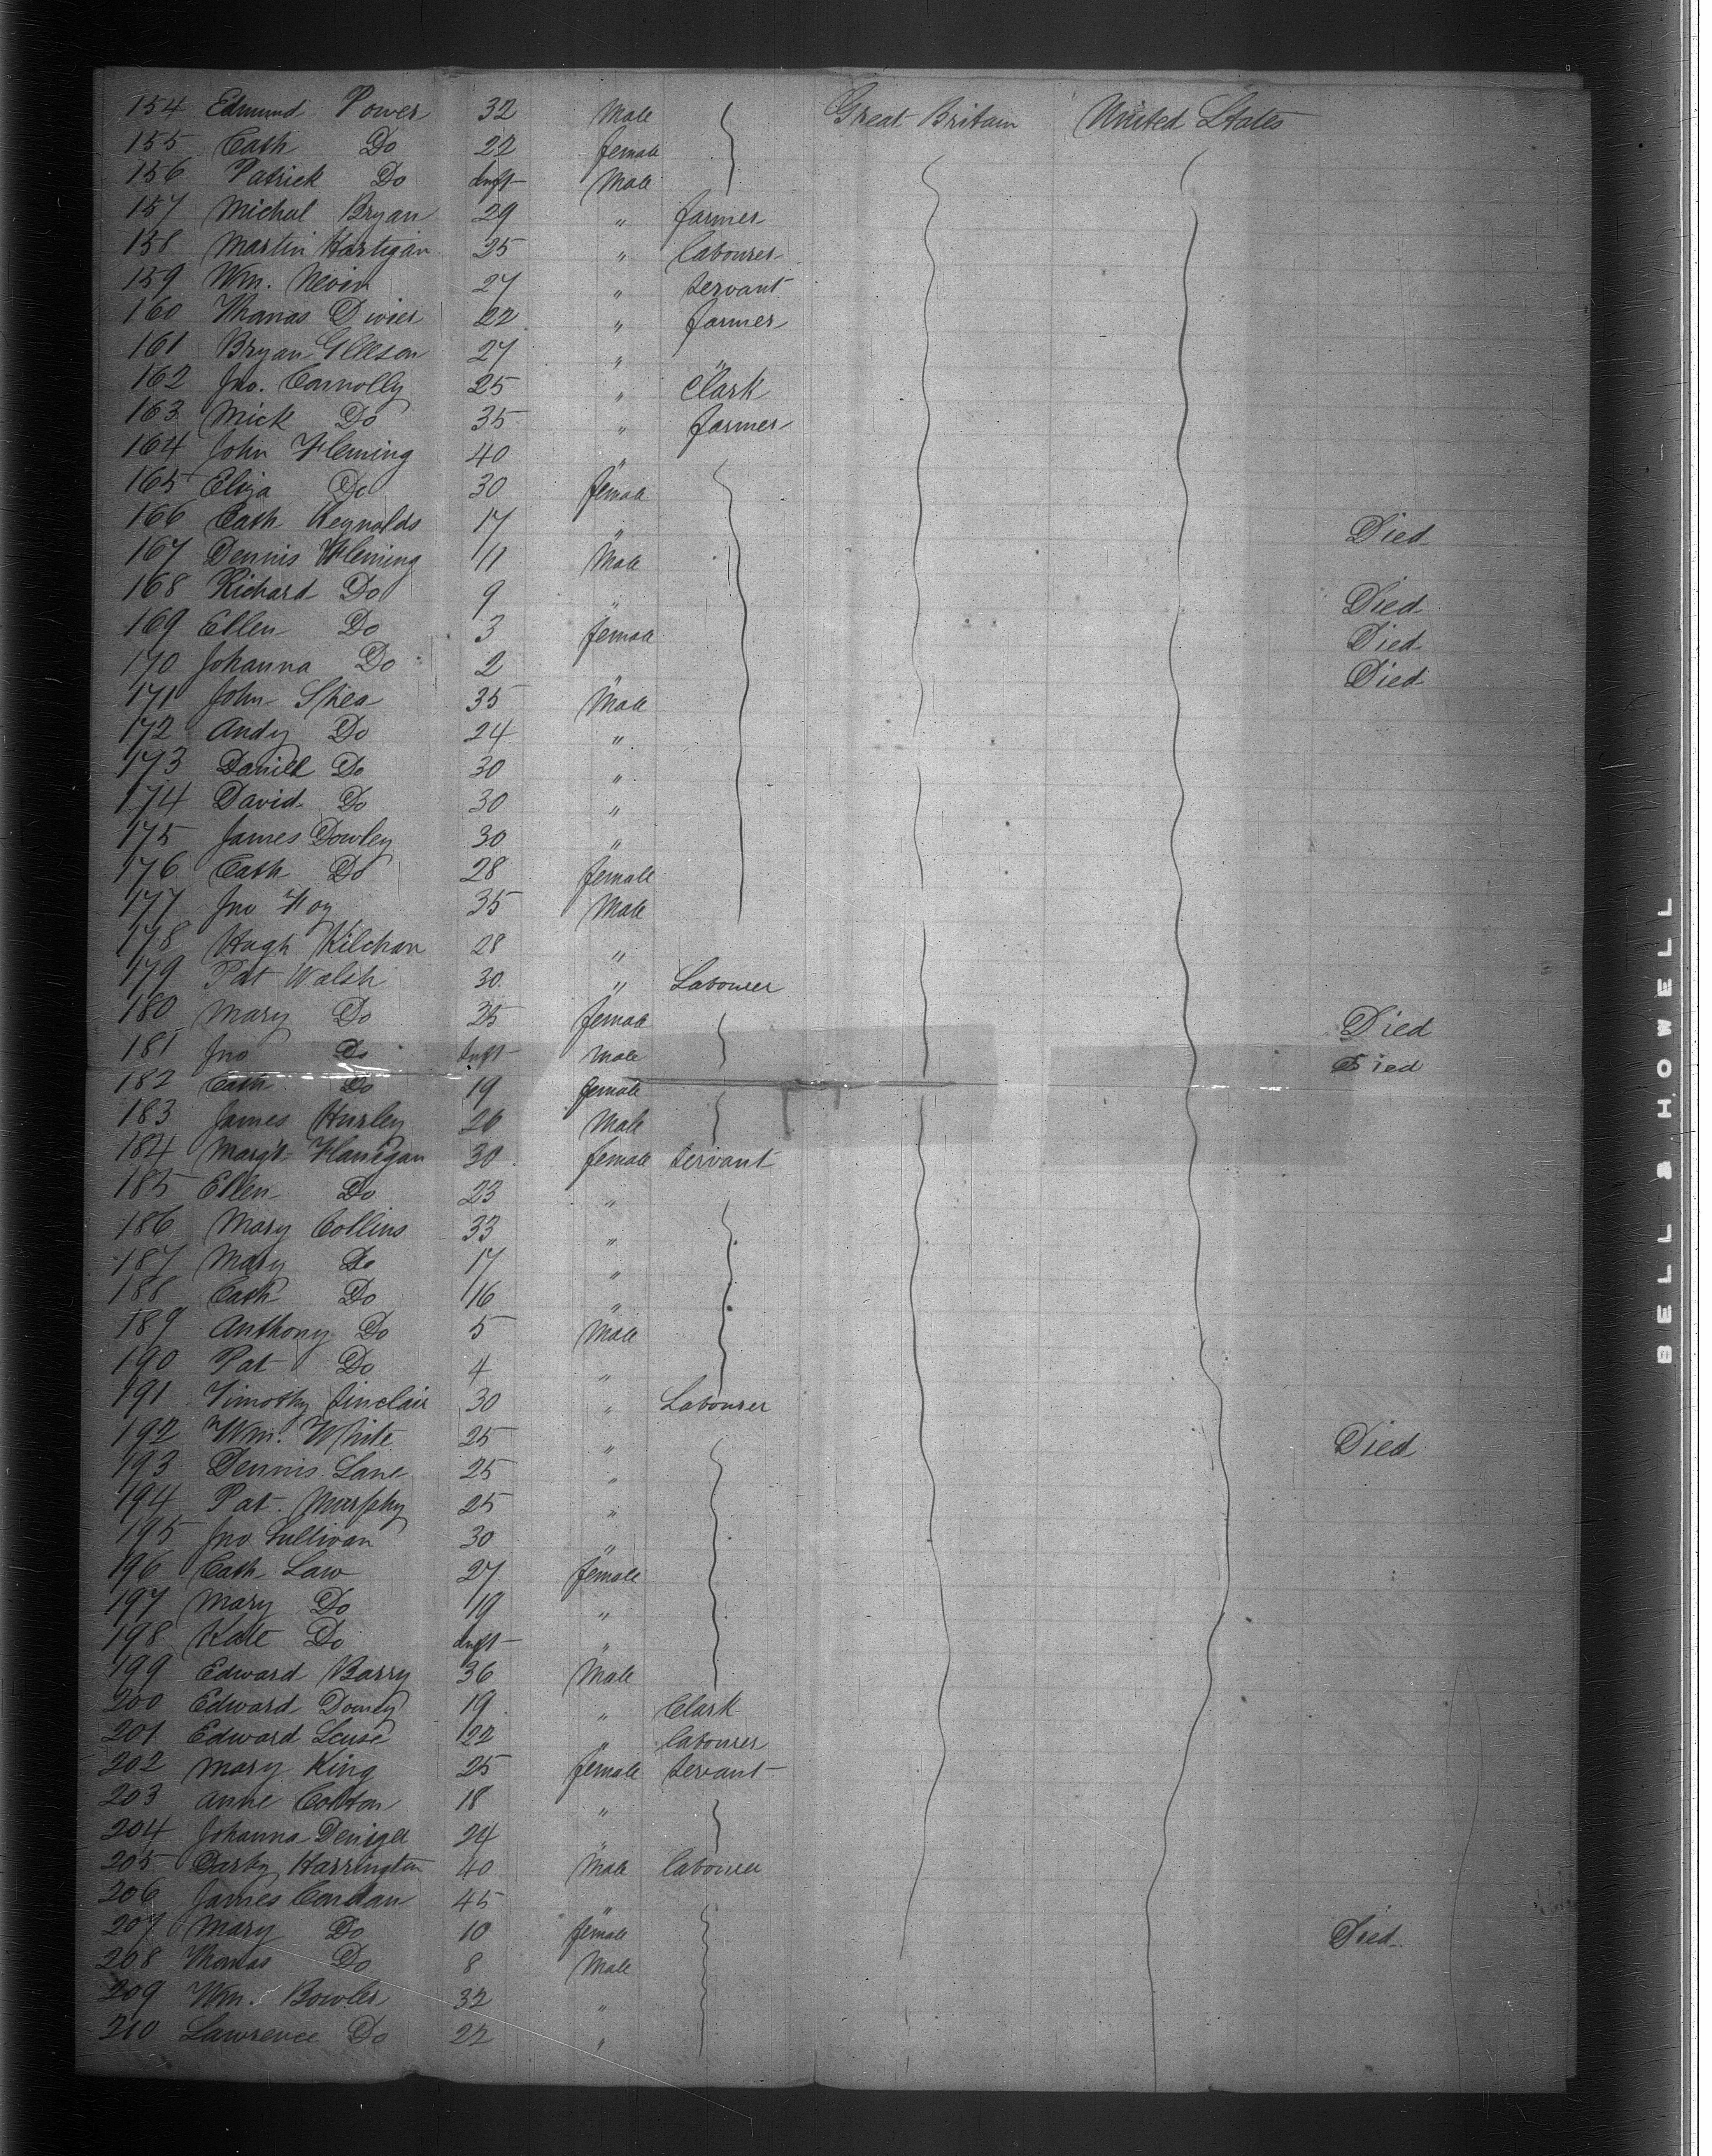 154 Edmund Power 32 Male Great Britain United States
155 Cath Do 22 female
156 Patrick Do Inft Male
157 Michal Bryan 29 " farmer
158 Martin Hartigan 25 " labourer
159 Wm. Nevin 27 " servant
160 Thomas Dwier 22 " farmer
161 Bryan Gleeson 27 " "
162 Jno. Connolly 25 " Clark
163 Mick Do 35 " farmer
164 John Fleming 40 "
165 Eliza Do 30 female
166 Cath Reynolds 17 " Died
167 Dennis Fleming 11 Male
168 Richard Do 9 " Died
169 Ellen Do 3 female Died
170 Johanna Do 2 " Died
171 John Shea 35 Male
172 Andy Do 24 "
173 Daniel Do 30 "
174 David Do 30 "
175 James Dowley 30 "
176 Cath Do 28 female
177 Jno Foy 35 Male
178 Hugh Kilchan 28 "
179 Pat Walsh 30 " Labourer
180 Mary Do 25 female Died
181 Jno Do Inft Male Died
182 Cath Do 19 female
183 James Hurley 20 Male
184 Margt Flanigan 30 female servant
185 Ellen Do 23 "
186 Mary Collins 33 "
187 Mary Do 17 "
188 Cath Do 16 "
189 Anthony Do 5 Male
190 Pat Do 4 "
191 Timothy Sinclair 30 " Labourer
192 Wm. White 25 " Died
193 Dennis Lane 25 "
194 Pat. Murphy 25 "
195 Jno Sullivan 30 "
196 Cath Law 27 female
197 Mary Do 19 "
198 Kate Do Inft "
199 Edward Barry 36 Male
200 Edward Downey 19 " Clark
201 Edward 22 " labourer
202 Mary King 25 female servant
203 Anne Cotton 18 "
204 Johanna 24 "
205 Darby Harrington 40 Male labourer
206 James Condan 45 "
207 Mary Do 10 female Died
208 Thomas Do 8 Male
209 Wm. Bowler 32 "
210 Lawrence Do 22 "
BELL & HOWELL